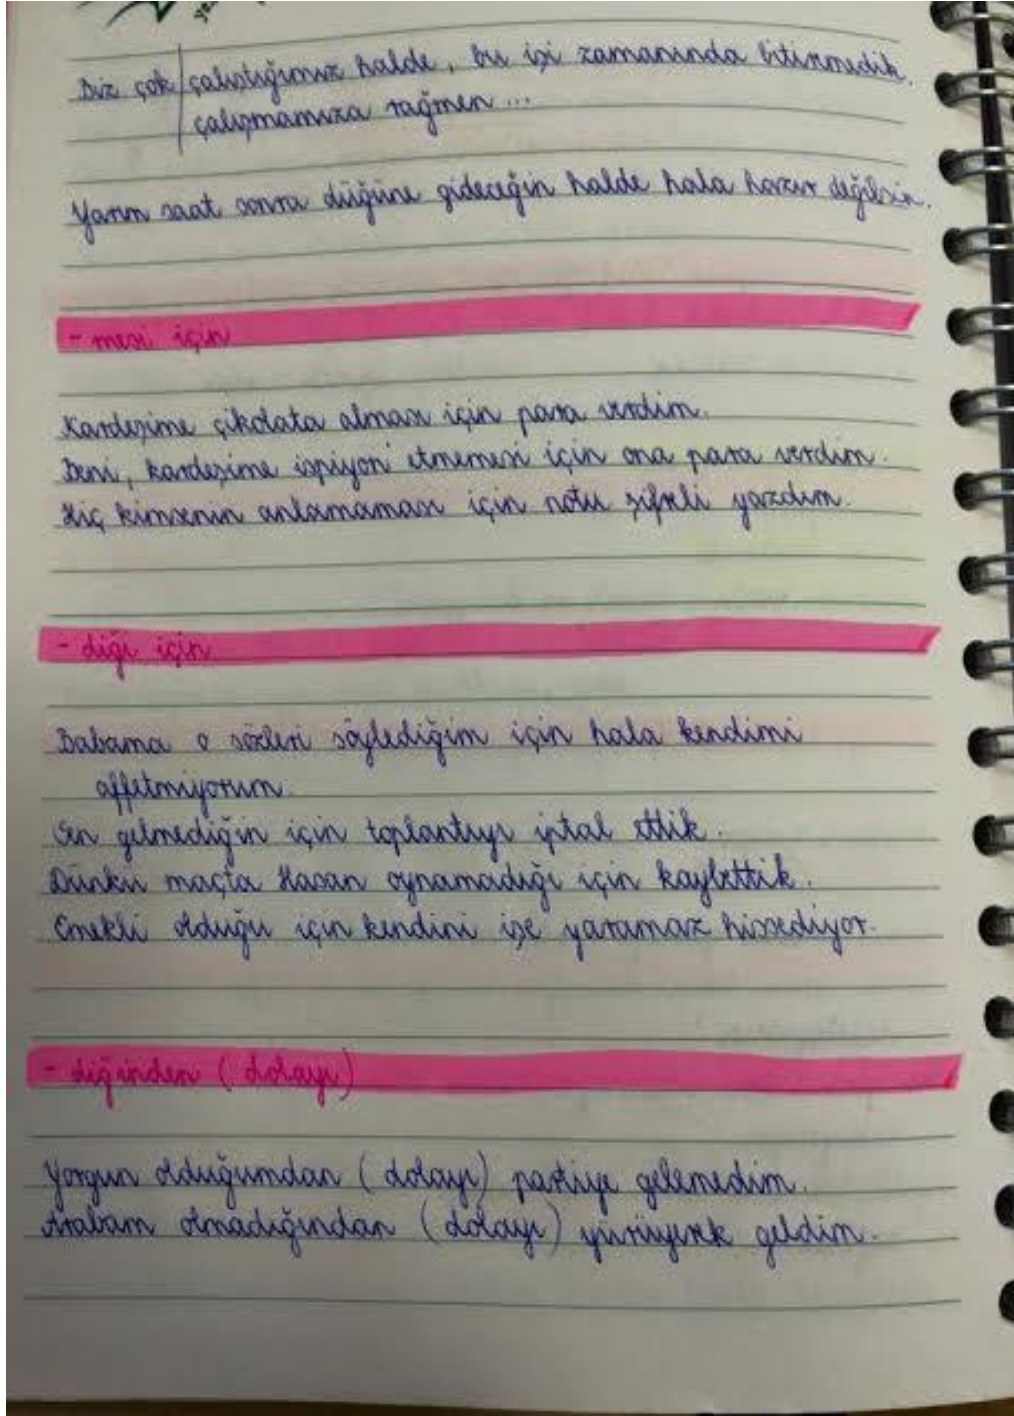 Biz çok çalıştığımız halde, bu işi zamanında bitirmedik.
çalışmamıza rağmen ...
Yarım saat sonra düğüne gideceğin halde hala hazır değilsin.
- mesi için
Kardeşime çikolata alması için para verdim.
Beni, kardeşime ispiyon etmemesi için ona para verdim.
Hiç kimsenin anlamaması için notu şifreli yazdım.
- diği için
Babama o sözleri söylediğim için hala kendimi
affetmiyorum.
Sen gelmediğin için toplantıyı iptal ettik.
Dünkü maçta Hasan oynamadığı için kaybettik.
Emekli olduğu için kendini işe yaramaz hissediyor.
- diğinden (dolayı)
Yorgun olduğumdan (dolayı) partiye gelemedim.
Arabam olmadığından (dolayı) yürüyerek geldim.